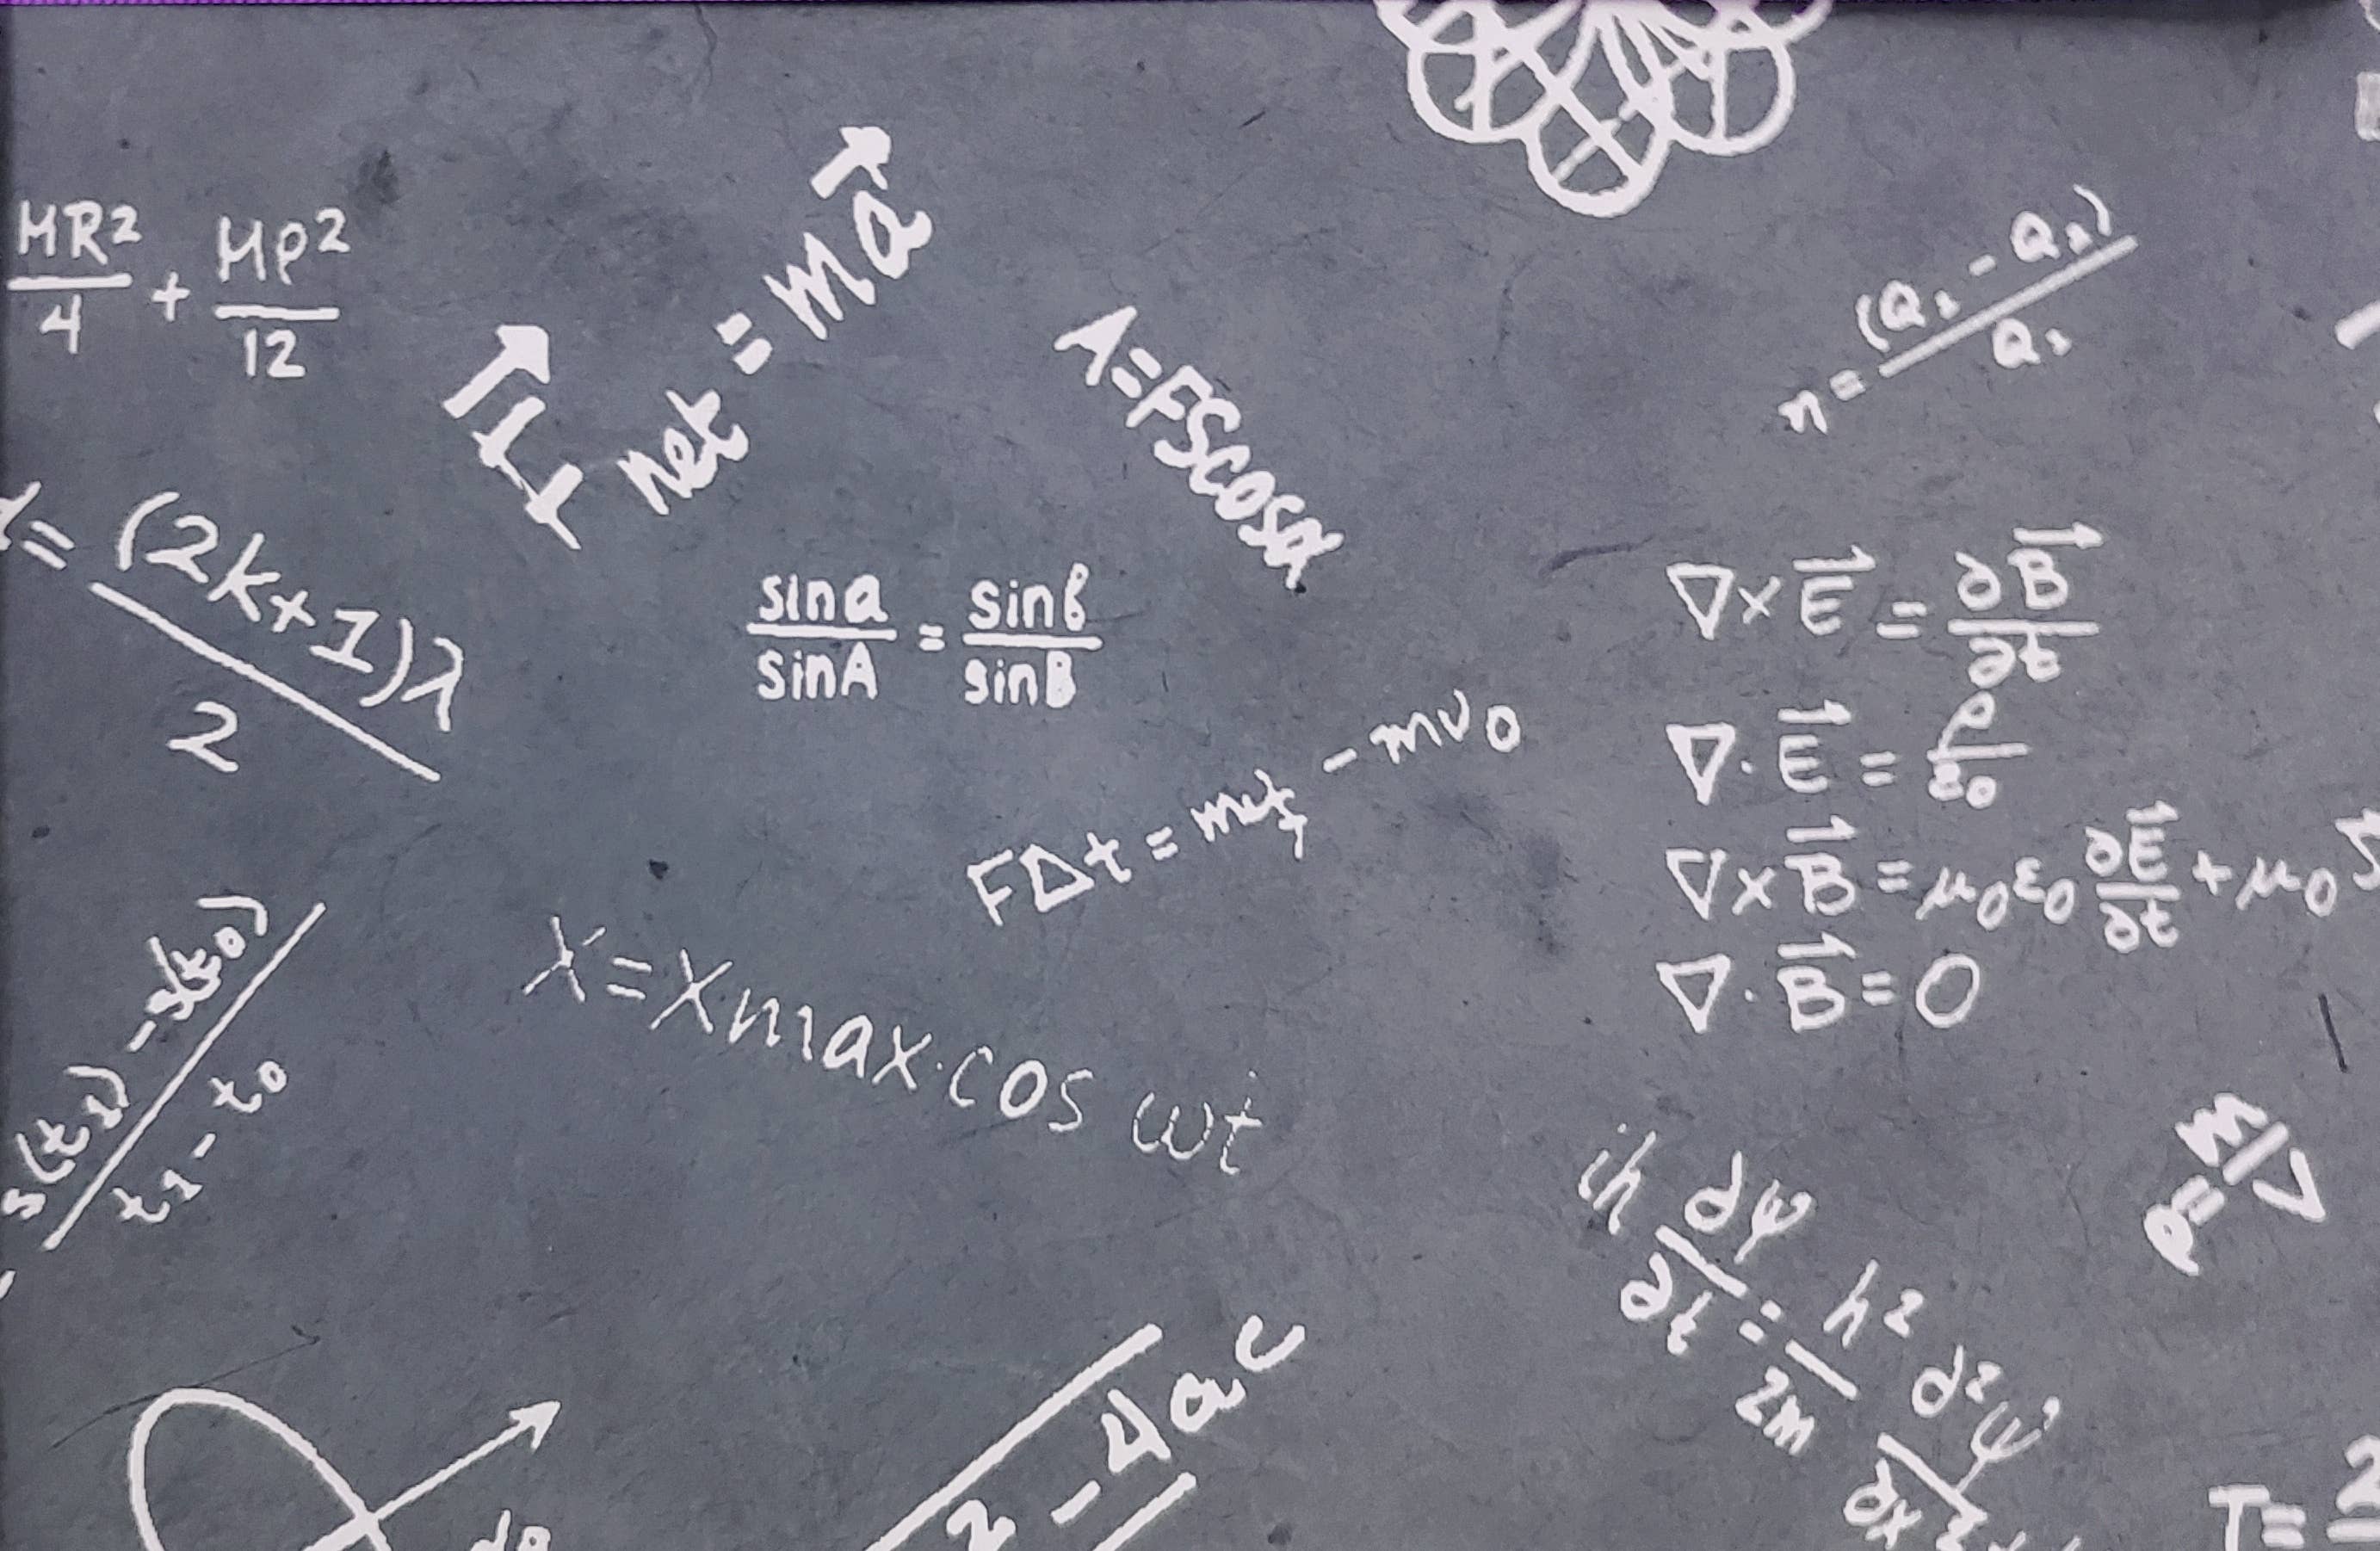 MR²/4 + Mρ²/12
F⃗ net = ma⃗
A=FScosα
n = (Q₁ - Q₂)/Q₁
= (2k+1)λ/2
sina/sinA = sinb/sinB
∇×E⃗ = ∂B⃗/∂t
∇·E⃗ = ρ/ε₀
∇×B⃗ = μ₀ε₀ ∂E⃗/∂t + μ₀
∇·B⃗ = 0
FΔt = mvₜ - mv₀
s(t₁) - s(t₀)/t₁ - t₀
X=Xmax·cos ωt
iħ ∂ψ/∂t = ħ²/2m ∂²ψ/∂x²
ρ=m/V
2 - 4ac
T= 2